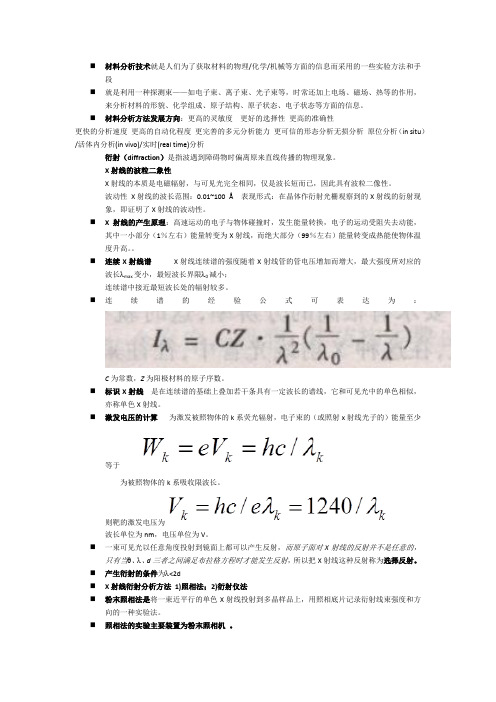 ■ 材料分析技术就是人们为了获取材料的物理/化学/机械等方面的信息而采用的一些实验方法和手
段
■ 就是利用一种探测束——如电子束、离子束、光子束等，时常还加上电场、磁场、热等的作用，
来分析材料的形貌、化学组成、原子结构、原子状态、电子状态等方面的信息。
■ 材料分析方法发展方向：更高的灵敏度 更好的选择性 更高的准确性
更快的分析速度 更高的自动化程度 更完善的多元分析能力 更可信的形态分析无损分析 原位分析（in situ）
/活体内分析(in vivo)/实时(real time)分析
衍射（diffraction）是指波遇到障碍物时偏离原来直线传播的物理现象。
X射线的波粒二象性
X射线的本质是电磁辐射，与可见光完全相同，仅是波长短而已，因此具有波粒二像性。
波动性 X射线的波长范围：0.01~100 Å 表现形式：在晶体作衍射光栅观察到的X射线的衍射现
象，即证明了X射线的波动性。
■ X 射线的产生原理：高速运动的电子与物体碰撞时，发生能量转换，电子的运动受阻失去动能，
其中一小部分（1％左右）能量转变为X射线，而绝大部分（99％左右）能量转变成热能使物体温
度升高。。
■ 连续X射线谱 X射线连续谱的强度随着X射线管的管电压增加而增大，最大强度所对应的
波长λmax变小，最短波长界限λ0减小；
连续谱中接近最短波长处的辐射较多。
■ 连续谱的经验公式可表达为：
Iλ = CZ · 1/λ² (1/λ0 − 1/λ)
C为常数，Z为阳极材料的原子序数。
■ 标识X射线 是在连续谱的基础上叠加若干条具有一定波长的谱线，它和可见光中的单色相似，
亦称单色X射线。
■ 激发电压的计算 为激发被照物体的k系荧光辐射，电子束的（或照射x射线光子的）能量至少
等于 Wk = eVk = hc / λk
为被照物体的k系吸收限波长。
则靶的激发电压为 Vk = hc / eλk = 1240 / λk
波长单位为nm，电压单位为V。
■ 一束可见光以任意角度投射到镜面上都可以产生反射，而原子面对X射线的反射并不是任意的，
只有当θ、λ、d三者之间满足布拉格方程时才能发生反射，所以把X射线这种反射称为选择反射。
■ 产生衍射的条件为λ<2d
■ X射线衍射分析方法 1)照相法；2)衍射仪法
■ 粉末照相法是将一束近平行的单色X射线投射到多晶样品上，用照相底片记录衍射线束强度和方
向的一种实验法。
■ 照相法的实验主要装置为粉末照相机 。